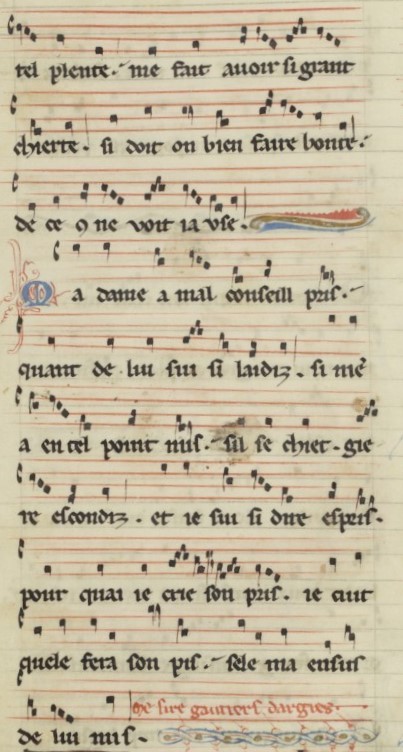 tel plente. me fait auoir si grant
chierte. si doit on bien faire bonte.
de ce 9 ne voit ia vse.
Ma dame a mal conseill pris.
quant de lui sui si laidiz. si me
a en tel point mis. sil se chiet. gie
re escondiz. et ie sui si dire espris.
pour quai ie crie son pris. ie cuit
quele fera son pis. sele ma ensus
de lui mis.
me sire gautiers dargies.